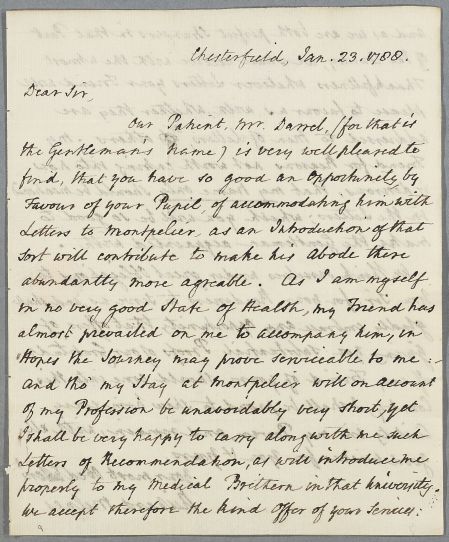 Chesterfield, Jan. 23. 1788.
Dear Sir,
Our Patient, Mr. Darrel, (for that is
the Gentleman's name) is very well pleased to
find, that you have so good an Opportunity, by
Favour of your Pupil, of accommodating him with
Letters to Montpelier, as an Introduction of that
sort will contribute to make his Abode there
abundantly more agreable. As I am myself
in no very good State of Health, my Friend has
almost prevailed on me to accompany him, in
Hopes the Journey may prove serviceable to me:-
and tho' my Stay at Montpelier will on account
of my Profession be unavoidably very short, yet
I shall be very happy to carry along with me such
Letters of Recommendation, as will introduce me
properly to my Medical Brethern in that University.
we accept therefore the kind Offer of your Services: